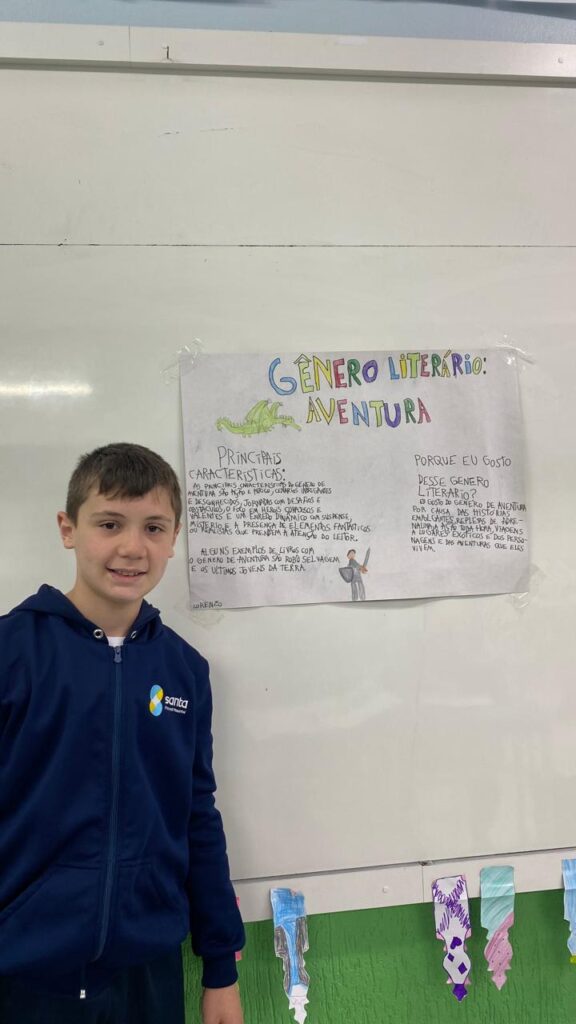 GÊNERO LITERÁRIO:
AVENTURA
PRINCIPAIS
CARACTERÍSTICAS:
AS PRINCIPAIS CARACTERÍSTICAS DO GENERO DE
AVENTURA SÃO AÇÃO E PERIGO, CENÁRIOS
E DESCONHECIDOS, JORNADAS COM DESAFIOS E
OBSTACULOS, O FOCO EM HEROIS CORAJOSOS E
VALENTES E UM ENREDO DINÂMICO COM SUSPENSE,
MISTÉRIO E A PRESENÇA DE ELEMENTOS FANTÁTICOS
OU REALISTAS QUE PRENDEM A ATENÇÃO DO LEITOR.
ALGUNS EXEMPLOS DE LIVROS COM
O GENERO DE AVENTURA SÃO ROBÔ SELVAGEM
E OS ULTIMOS JOVENS DA TERRA
LORENZO
PORQUE EU GOSTO
DESSE GENERO
LITERARIO?
EU GOSTO DO GENERO DE AVENTURA
POR CAUSA DAS HISTORIAS
REPLETAS DE ADRE-
NALINA A AÇÃO TODA HORA, VIAGENS
A LUGARES EXOTICOS E DOS PERSO-
NAGENS E DAS AVENTURAS QUE ELES
VIVEM.
santa